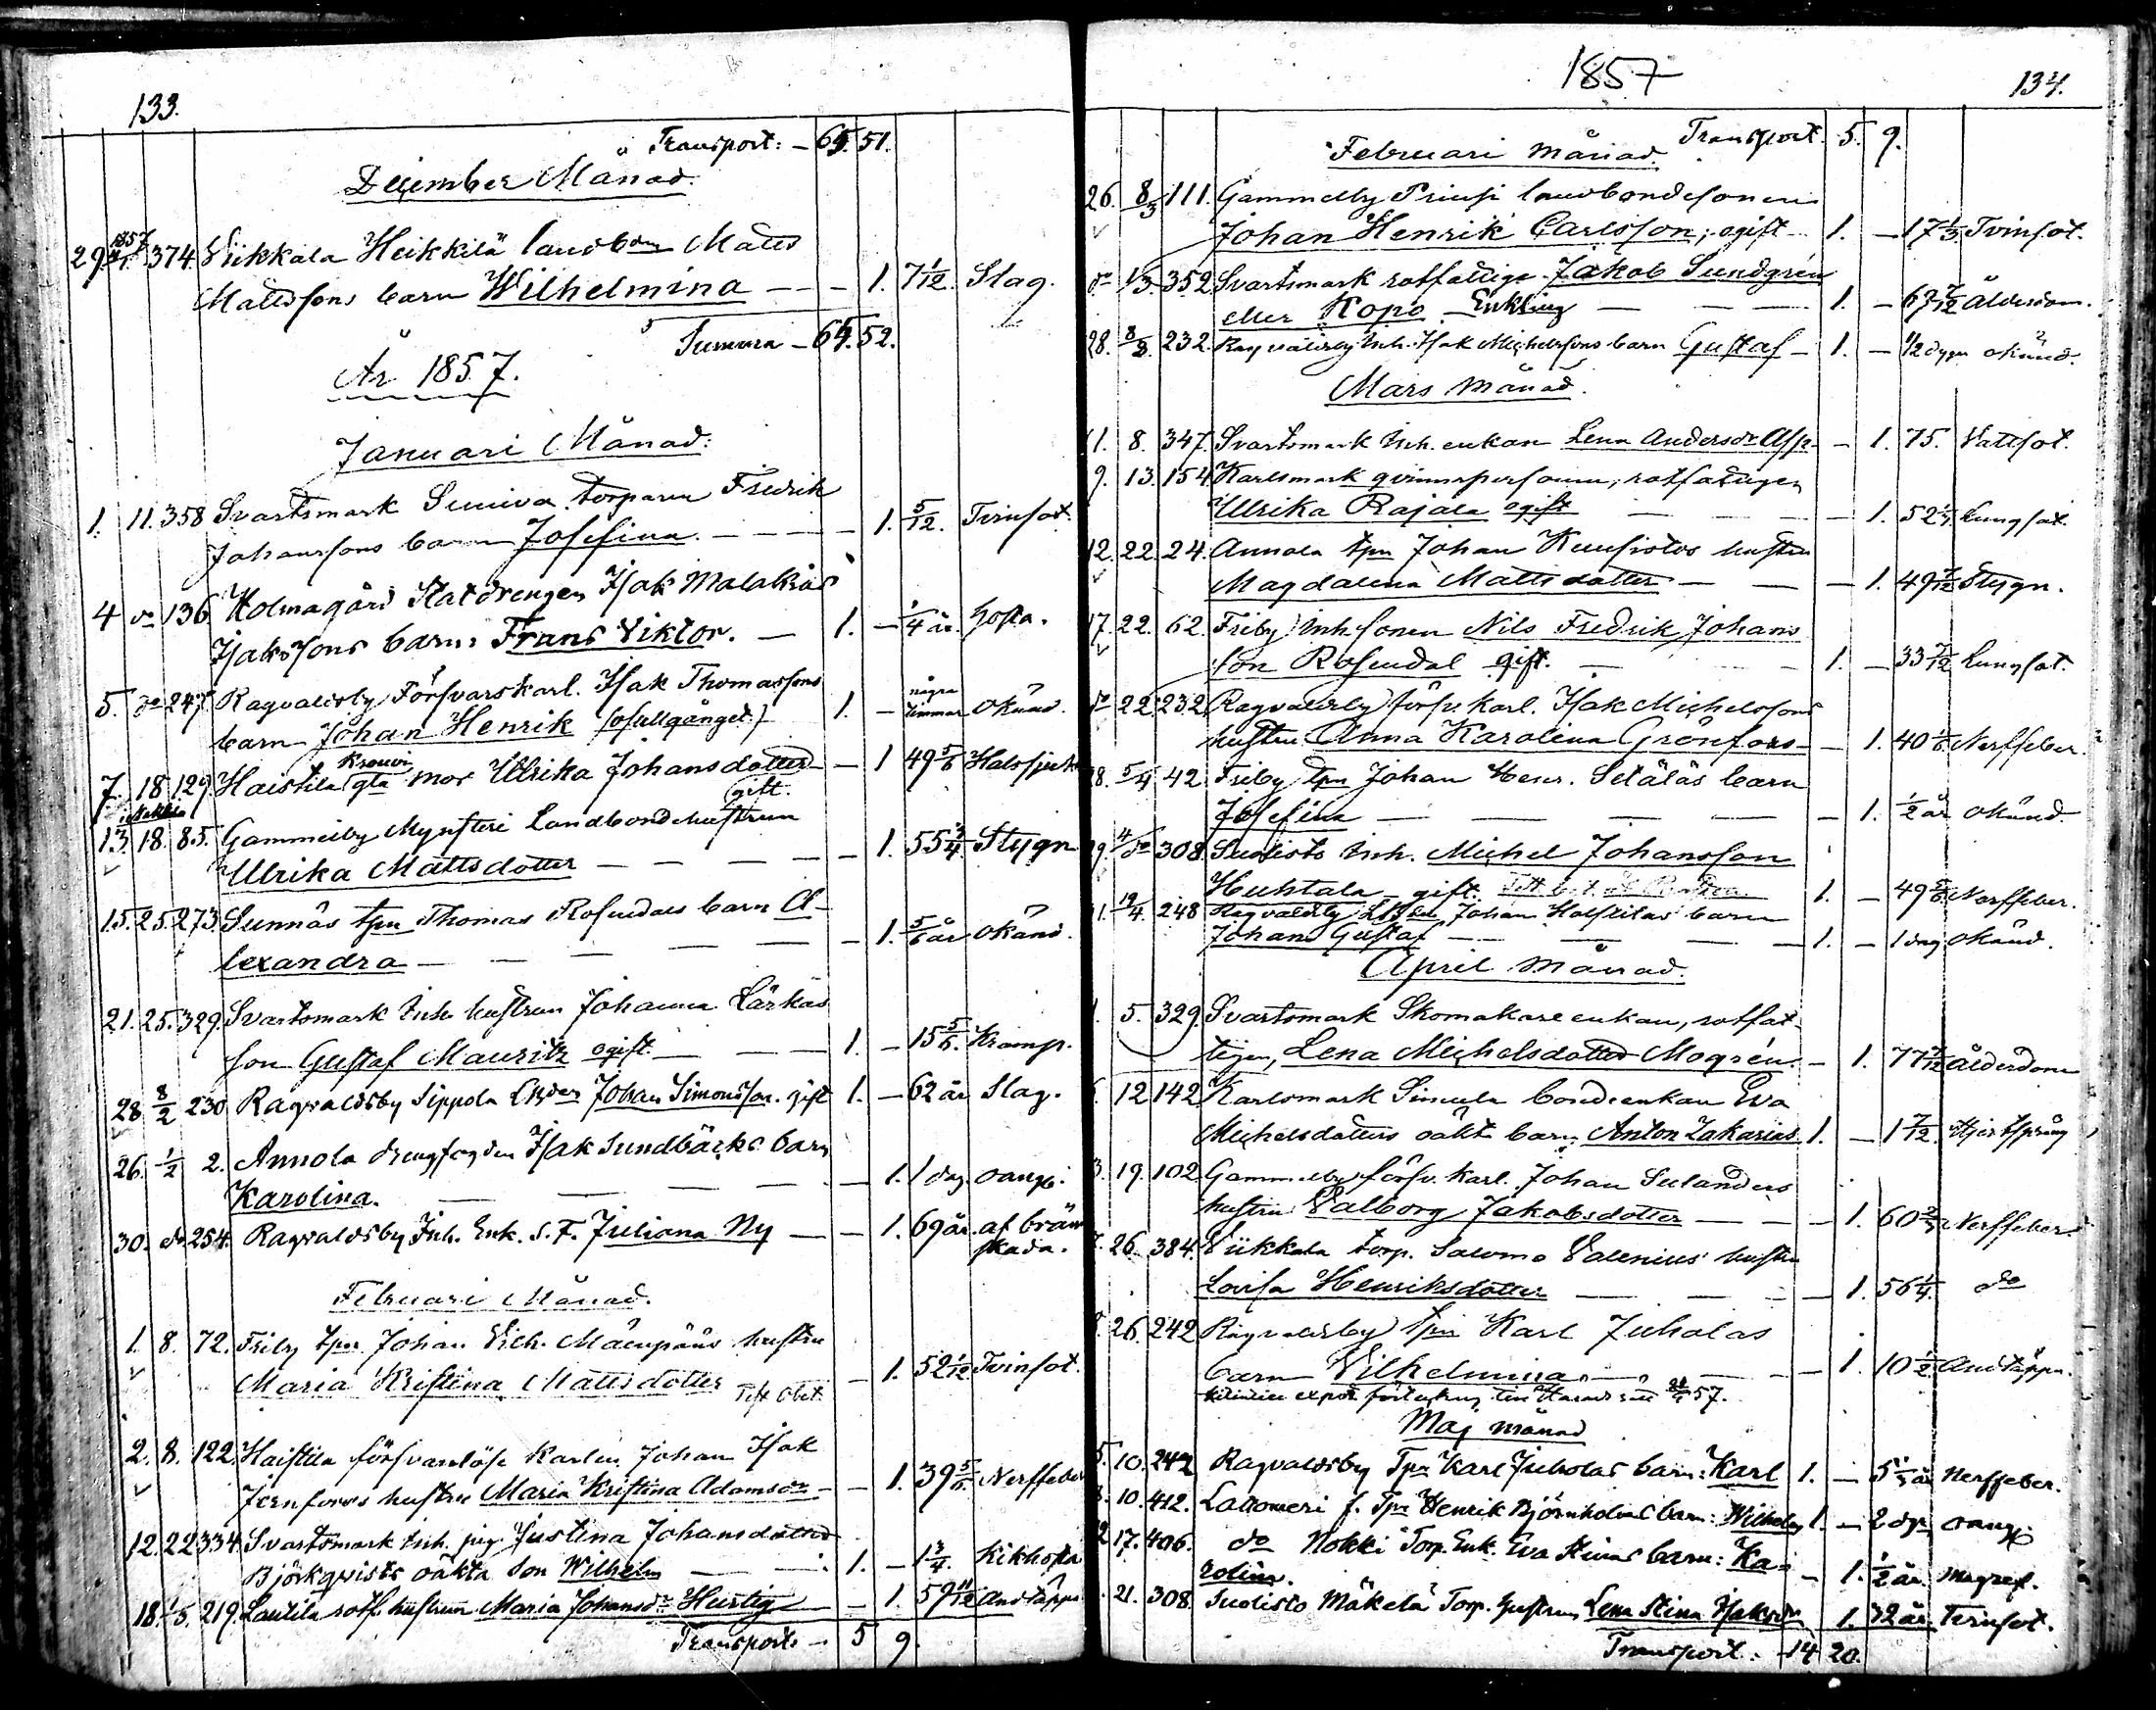 133.
Transport: - 65. 51.
December Månad.
29. 1857 4/1. 374. Viikkala Heikkilä landbdn Matts
Mattssons barn Wilhelmina - - - 1. 7 1/12. Slag.
Summa - 65. 52.
År 1857.
Januari Månad.
1. 11. 358 Svartsmark Suniva torparen Fredrik
Johanssons barn Josefina. - - - 1. 5/12. Tvinsot.
4 do 136 Holmagård Statdrengen Isak Malakias
Isakssons barn: Frans Viktor. - 1. - 1/4 år. hosta.
5. do 247. Ragvaldsby Försvarskarl. Isak Thomassons
barn Johan Henrik (ofullgånget) 1. - några timmar okänd.
7. 18. 129 Haistila Krouvi gta mor Ulrika Johansdotter - - 1 49 5/6 Halssjuka
gift.
13. 18. 85. Gammelby Mynsteri Landbondehustrun
Ulrika Mattsdotter - - - - - 1. 55 3/4. Stygn
15. 25. 273. Sunnäs tpn Thomas Rosendals barn A-
lexandra - - - - - - 1. 5/6 år okänd.
21. 25. 329. Svartsmark Inh. hustrun Johanna Lärkas
son Gustaf Mauritz ogift. - - - 1. - 15 5/6. Kramp.
28 8/2 230 Ragvaldsby Sippola Johan Simonsson. gift 1. - 62 år Slag.
26. 1/2 2. Annola drengfogden Isak Sundbäcks barn
Karolina. - - - - - 1. 1 dag. oangif.
30. do 254. Ragvaldsby Inh. Enk. S. F. Juliana Ny - - 1. 69 år. af brän
skada.
Februari Månad.
1. 8. 72. Friby tpn. Johan Vilh. Mäenpääs hustru
Maria Kristina Mattsdotter - 1. 52 1/12 Tvinsot.
2. 8. 122. Haistila försvarslöse karlen Johan Isak
Jernfors hustru Maria Kristina Adamsdr - - 1. 39 5/6. Nerffeber
12. 22 334. Svartsmark inh. pig. Justina Johansdotter
Björkqvists oäkta son Wilhelm - - 1. - 1 3/4. Kikhosta
18. 1/3. 219. Lautila rotf. hustrun Maria Johansdr Hurtig - 1. 59 11/12 Andtäppa
Transport: - 5 9.
1857
134.
Transport. 5. 9.
Februari månad.
26. 8/3 111. Gammelby Prinsi landbondesonen
Johan Henrik Carlsson, ogift - 1. - 17 1/3 Tvinsot.
do 1/3. 352 Svartsmark rotfattige Jakob Sundgrén
eller Kopo - Enkling - - - 1. - 67 7/12 Ålderdom.
28. 8/3. 232. Ragvaldsby Inh. Isak Michelssons barn Gustaf - 1. - 1/2 dygn okänd.
Mars månad.
11. 8. 347. Svartsmark Inh. enkan Lena Andersdr Asp - - 1. 75. Vattsot.
9. 13. 154 Karlsmark qvinnspersonen, rotfattigen
Ulrika Rajala ogift - - - 1. 52 Lungsot.
12. 22. 24. Annola tpn Johan Kuusistos hustru
Magdalena Mattsdotter - - - 1. 49 7/12 Stygn.
17. 22. 62. Friby Inh. sonen Nils Fredrik Johans
son Rosendal gift. - - 1. - 33 7/12 Lungsot.
do 22. 232. Ragvaldsby försv. karl. Isak Michelssons
hustru Anna Karolina Grönfors - - 1. 40 1/6 Nerffeber.
18. 5/4 42 Friby tpn Johan Henr. Setäläs barn
Josefina - - - - - 1. 1/2 år okänd.
29. do 308. Suolisto Inh. Michel Johansson
Huhtala - gift. 1. - 49 5/6 Nerffeber.
11. 19/4. 248 Ragvaldsby Johan Halstilas barn
Johan Gustaf - - - 1. - 1 dag okänd.
April månad.
1. 5. 329. Svartsmark Skomakare enkan, rotfat-
tigen, Lena Michelsdotter Mogrén. - 1. 77 7/12 Ålderdom
12 142 Karlsmark Simula bondeenkan Eva
Michelsdotters oäkt. barn, Anton Zakarias 1. - 1 7/12. Hjertsprång
3. 19. 102 Gammelby försv. karl. Johan Sulanders
hustru Valborg Jakobsdotter - - - 1. 60 Nerffeber.
26. 384. Viikkala torp. Salomo Valenius hustru
Lovisa Henriksdotter - - - 1. 56 1/4. do
26. 242 Ragvaldsby tpn Karl Juholas
barn Vilhelmina - - - 1. 10 1/2 Andtäppa.
57.
Maj månad
5. 10. 242 Ragvaldsby Tpn Karl Juholas barn: Karl 1. - 5 år Nerffeber.
8. 10. 412. Lattomeri f. Tpn Henrik Björnholms barn: Wilhelm 1. - 2 dgr oangif
12 17. 406. do Nokki Torp. Enk. Eva Stinas barn: Ka-
rolina. - 1. 1/2 år. Magref.
21. 308 Suolisto Mäkelä Torp. hustrun Lena Stina Isaksdr 1. 32 år. Tvinsot.
Transport: 14 20.